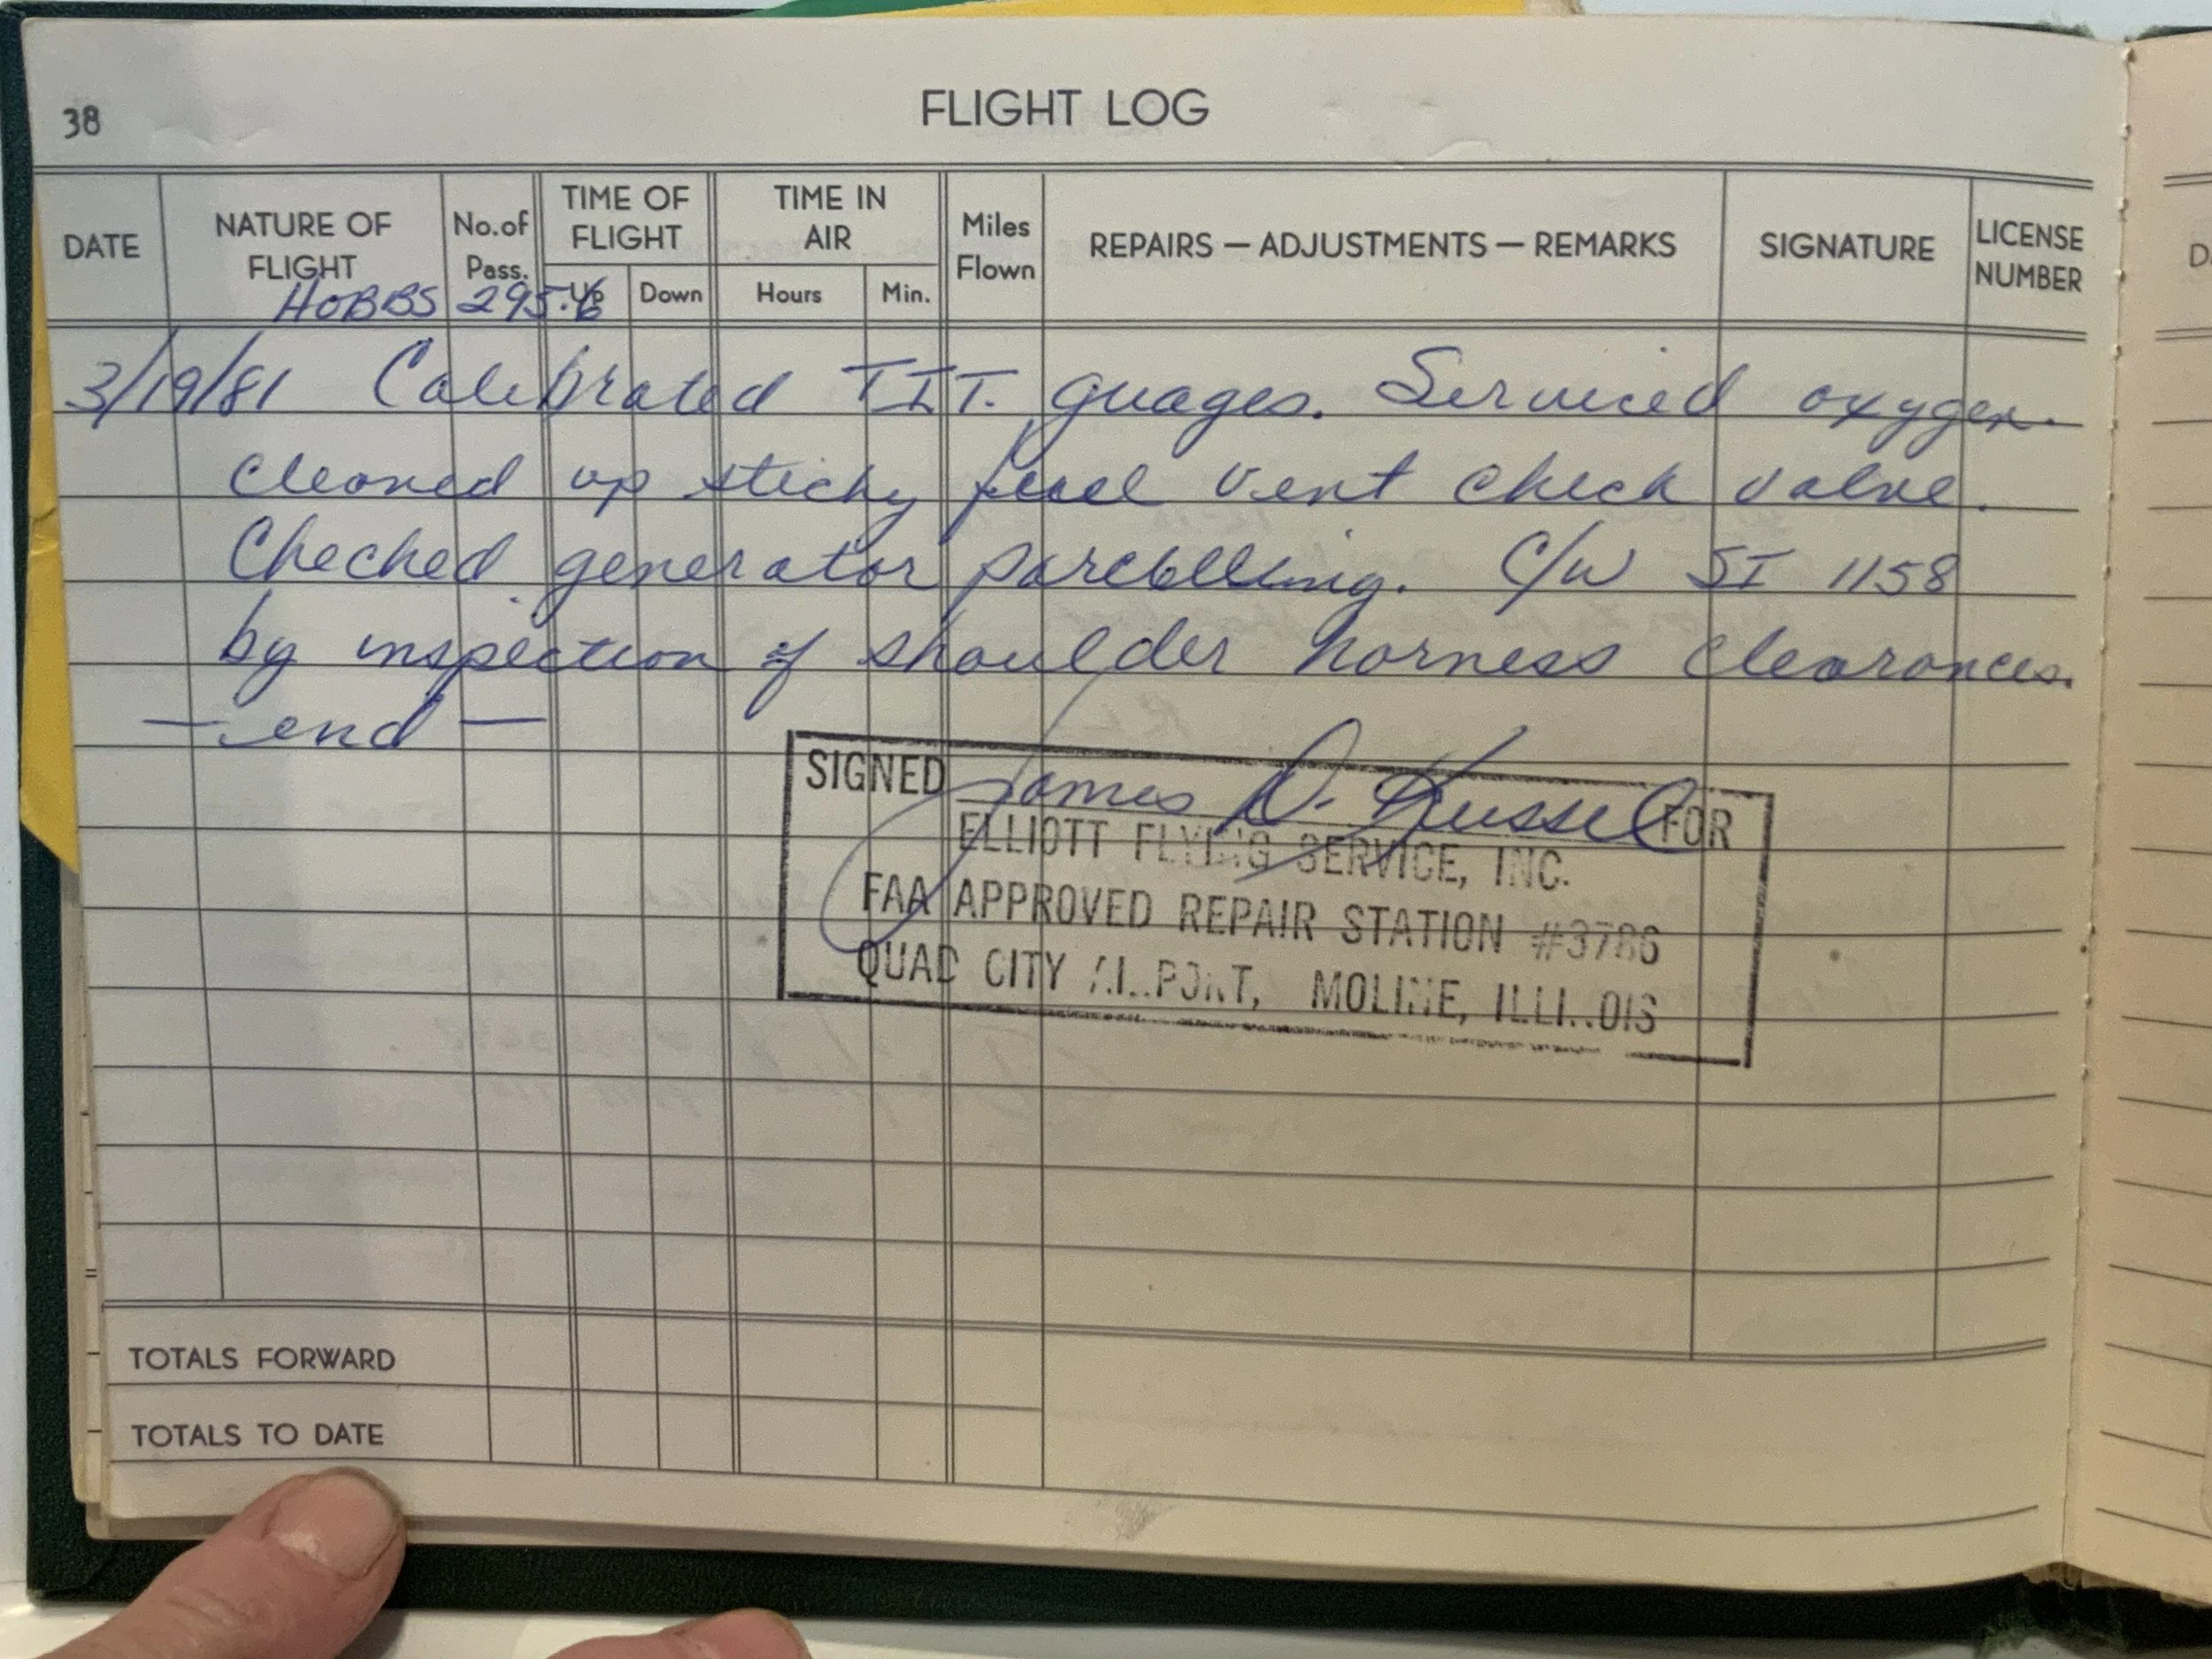 38
FLIGHT LOG
DATE NATURE OF FLIGHT No.of Pass. TIME OF FLIGHT Up Down TIME IN AIR Hours Min. Miles Flown REPAIRS — ADJUSTMENTS — REMARKS SIGNATURE LICENSE NUMBER
HOBBS 295.6
3/19/81 Calibrated TIT. guages. Serviced oxygen.
cleaned up sticky fuel vent check valve.
Checked generator C/W SI 1158
by inspection of shoulder harness clearances.
— end —
SIGNED James D. Russel FOR
ELLIOTT FLYING SERVICE, INC.
FAA APPROVED REPAIR STATION #3786
QUAD CITY AIRPORT, MOLINE, ILLINOIS
TOTALS FORWARD
TOTALS TO DATE